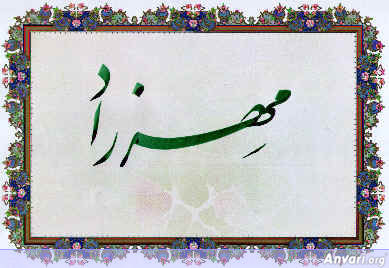 مِهرزاد
Anvari.org